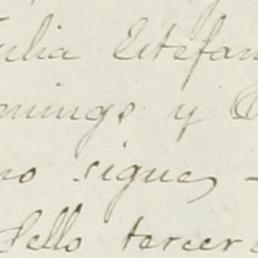 ulia Estefan
mingo y
no sigue,
Sello tercer